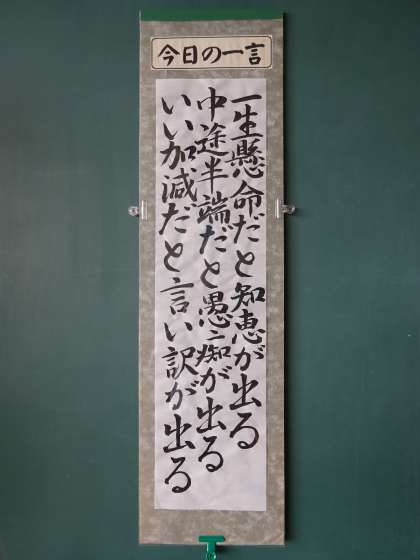 今日の一言
一生懸命だと知恵が出る
中途半端だと愚痴が出る
いい加減だと言い訳が出る